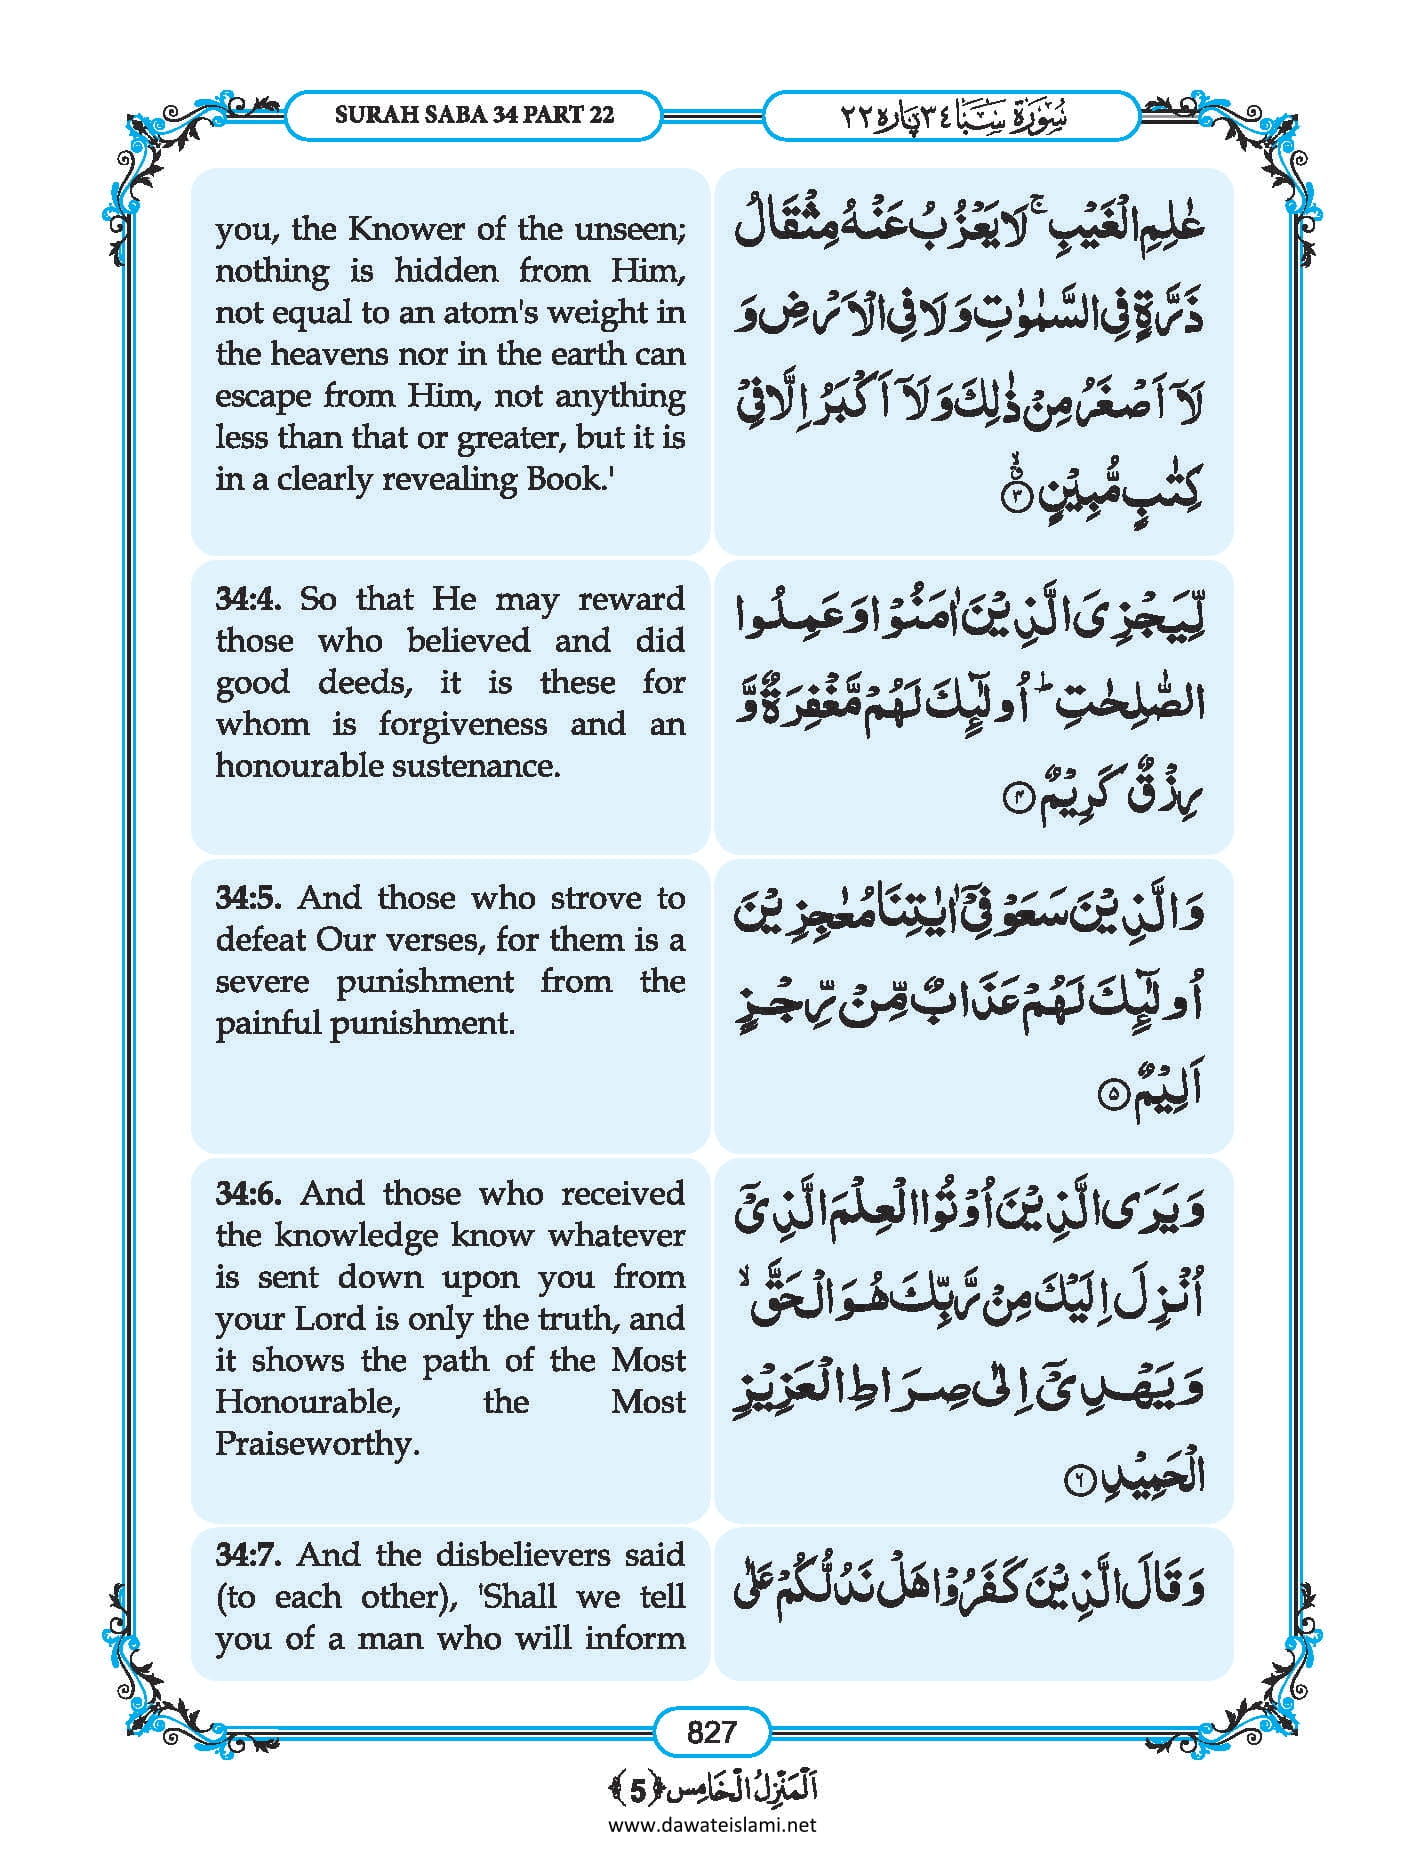 SURAH SABA 34 PART 22
سُوْرَۃ سَبَا ٣٤ پارہ ٢٢
you, the Knower of the unseen;
nothing is hidden from Him,
not equal to an atom's weight in
the heavens nor in the earth can
escape from Him, not anything
less than that or greater, but it is
in a clearly revealing Book.'
عٰلِمِ الْغَیْبِ ۚ لَا یَعْزُبُ عَنْهُ مِثْقَالُ
ذَرَّةٍ فِی السَّمٰوٰتِ وَ لَا فِی الْاَرْضِ وَ
لَاۤ اَصْغَرُ مِنْ ذٰلِكَ وَ لَاۤ اَكْبَرُ اِلَّا فِیْ
كِتٰبٍ مُّبِیْنٍ ۙ﴿۳﴾
34:4. So that He may reward
those who believed and did
good deeds, it is these for
whom is forgiveness and an
honourable sustenance.
لِّیَجْزِیَ الَّذِیْنَ اٰمَنُوْا وَ عَمِلُوا
الصّٰلِحٰتِ ؕ اُولٰٓىِٕكَ لَهُمْ مَّغْفِرَةٌ وَّ
رِزْقٌ كَرِیْمٌ ﴿۴﴾
34:5. And those who strove to
defeat Our verses, for them is a
severe punishment from the
painful punishment.
وَ الَّذِیْنَ سَعَوْ فِیْۤ اٰیٰتِنَا مُعٰجِزِیْنَ
اُولٰٓىِٕكَ لَهُمْ عَذَابٌ مِّنْ رِّجْزٍ
اَلِیْمٌ ﴿۵﴾
34:6. And those who received
the knowledge know whatever
is sent down upon you from
your Lord is only the truth, and
it shows the path of the Most
Honourable, the Most
Praiseworthy.
وَ یَرَی الَّذِیْنَ اُوْتُوا الْعِلْمَ الَّذِیْۤ
اُنْزِلَ اِلَیْكَ مِنْ رَّبِّكَ هُوَ الْحَقَّ ۙ
وَ یَهْدِیْۤ اِلٰی صِرَاطِ الْعَزِیْزِ
الْحَمِیْدِ ﴿۶﴾
34:7. And the disbelievers said
(to each other), 'Shall we tell
you of a man who will inform
وَ قَالَ الَّذِیْنَ كَفَرُوْا هَلْ نَدُلُّكُمْ عَلٰی
827
اَلْمَنْزِلُ الْخَامِس ﴿5﴾
www.dawateislami.net